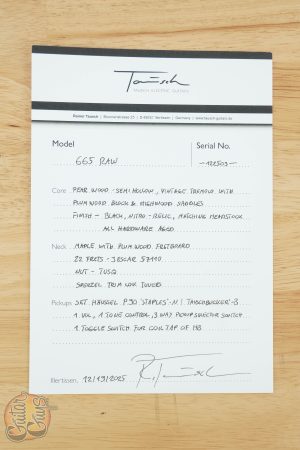 Tausch
TAUSCH ELECTRIC GUITARS
Rainer Tausch | D-89257 Illertissen | Germany | www.tausch-guitars.de
Model
Serial No.
665 RAW
-122503-
Core PEAR WOOD - SEMIHOLLOW, VINTAGE TREMOLO WITH
PLUMWOOD BLOCK & HIGHWOOD SADDLES
FINISH - BLACK, NITRO-RELIC, MATCHING HEADSTOCK
ALL HARDWARE AGED
Neck MAPLE WITH PLUMWOOD FRETBOARD
22 FRETS - JESCAR 57110
NUT - TUSQ
SPERZEL TRIM LOK TUNERS
Pickups SET HÄUSSEL P90 STAPLES-N / TAUSCHBUCKER-B
1 VOL, 1 TONE CONTROL, 3 WAY PICKUPSELECTOR SWITCH
1 TOGGLE SWITCH FOR COIL TAP OF HB
Illertissen, 12/19/2025 R. Tausch
Guitar Guys